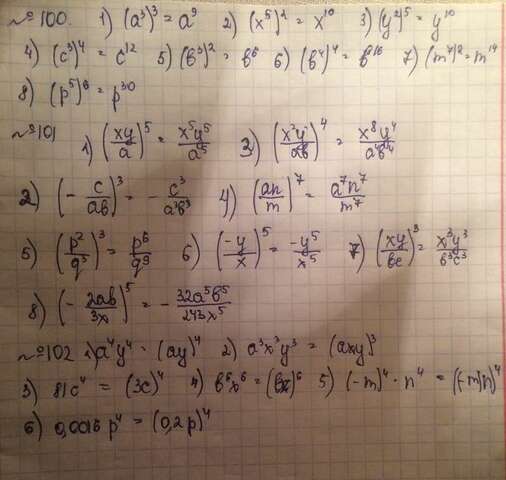 №100. 1) (a³)³ = a⁹ 2) (x⁵)² = x¹⁰ 3) (y²)⁵ = y¹⁰
4) (c³)⁴ = c¹² 5) (в³)² = в⁶ 6) (в⁴)⁴ = в¹⁶ 7) (m⁷)² = m¹⁴
8) (p⁵)⁶ = p³⁰
№101 1) (xy/a)⁵ = x⁵y⁵/a⁵ 3) (x²y/aв)⁴ = x⁸y⁴/a⁴в⁴
2) (- c/aв)³ = - c³/a³в³ 4) (an/m)⁷ = a⁷n⁷/m⁷
5) (p²/q³)³ = p⁶/q⁹ 6) (-y/x)⁵ = -y⁵/x⁵ 7) (xy/вc)³ = x³y³/в³c³
8) (- 2aв/3x)⁵ = - 32a⁵в⁵/243x⁵
№102 1) a⁴y⁴ = (ay)⁴ 2) a³x³y³ = (axy)³
3) 81c⁴ = (3c)⁴ 4) в⁶x⁶ = (вx)⁶ 5) (-m)⁴ · n⁴ = (-m)n)⁴
6) 0,0016 p⁴ = (0,2p)⁴